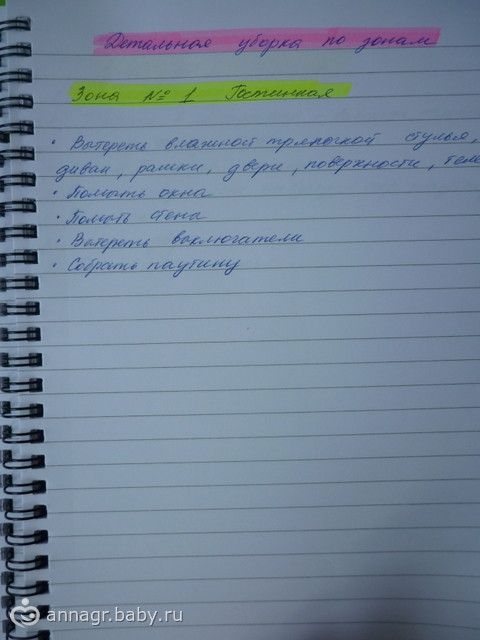 Детальная уборка по зонам
Зона № 1 Гостинная
• Вытереть влажной тряпочкой стулья,
диван, рамки, двери, поверхности, теле
• Помыть окна
• Помыть стены
• Вытереть выключатели
• Собрать паутину
annagr.baby.ru